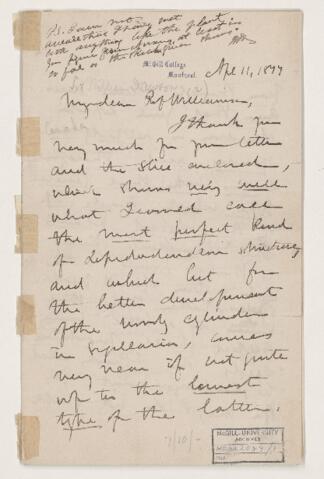 P.S. I am not
McGill College
Montreal.
Apl 11, 1877
My dear Prof Williamson,
I thank you
very much for your letter
and the slice enclosed,
which shows very well
what I would call
the most perfect kind
of Lepidodendron structure,
and which but for
the better development
of the woody cylinder
in Sigillaria, comes
very near if not quite
up to the lowest
type of the latter.
7/10/-
McGILL UNIVERSITY
ARCHIVES